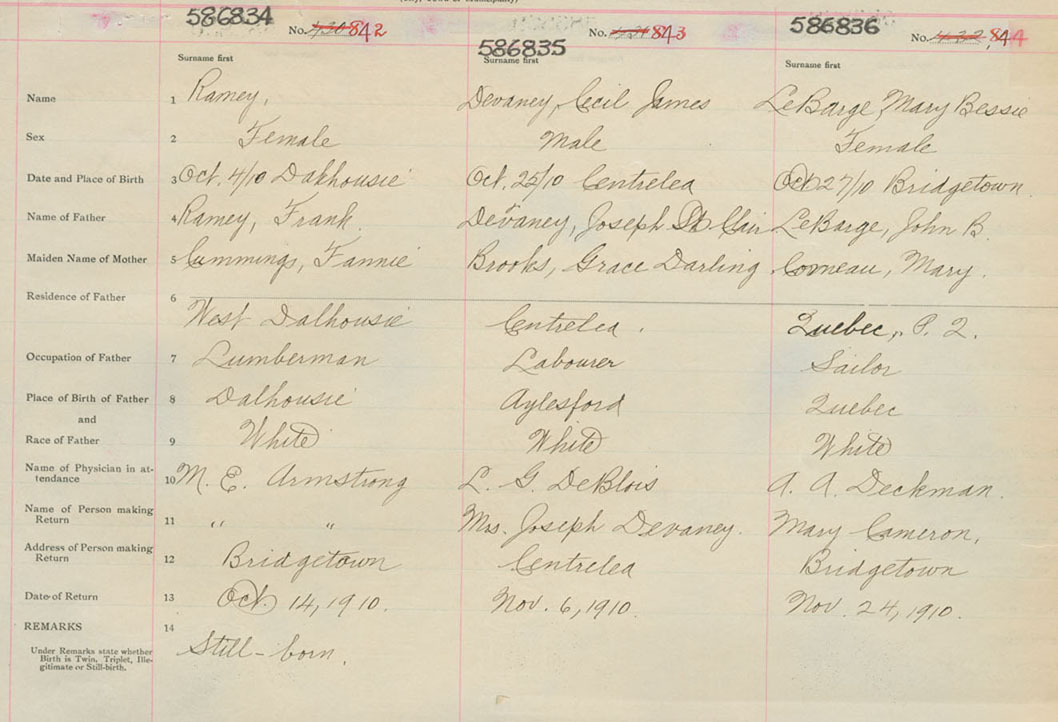 586834 No. 842
586835 No. 843
586836 No. 844
Surname first Surname first Surname first
Name 1 Ramey, Devaney, Cecil James LeBarge, Mary Bessie
Sex 2 Female Male Female
Date and Place of Birth 3 Oct. 4/10 Dalhousie Oct. 25/10 Centrelea Oct 27/10 Bridgetown
Name of Father 4 Ramey, Frank. Devaney, Joseph St Clair LeBarge, John B.
Maiden Name of Mother 5 Cummings, Fannie Brooks, Grace Darling Comeau, Mary.
Residence of Father 6 West Dalhousie Centrelea. Quebec, P. Q.
Occupation of Father 7 Lumberman Labourer Sailor
Place of Birth of Father 8 Dalhousie Aylesford Quebec
and
Race of Father 9 White White White
Name of Physician in at-
tendance 10 M. E. Armstrong L. G. DeBlois A. A. Deckman.
Name of Person making
Return 11 " " Mrs. Joseph Devaney. Mary Cameron,
Address of Person making
Return 12 Bridgetown Centrelea Bridgetown
Date of Return 13 Oct. 14, 1910. Nov. 6, 1910. Nov. 24, 1910.
REMARKS 14 Still-born.
Under Remarks state whether
Birth is Twin, Triplet, Ille-
gitimate or Still-birth.